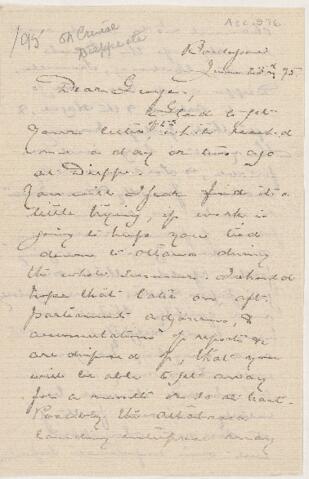 Acc. 576
/95 On Cruise
Dieppe etc
Boulogne
June 23rd 95.
Dear George,
Glad to get
yours letter, which reached
me a day or two ago
at Dieppe.
You will I fear find it a
little trying, if work is
going to keep you tied
down to Ottawa during
the whole summer. I should
hope that later on, after
parliament adjourns, &
accumulations of reports &c
are disposed of, that you
will be able to get away
for a month or so at least.
Possibly the Athabasca
boundary enterprise may